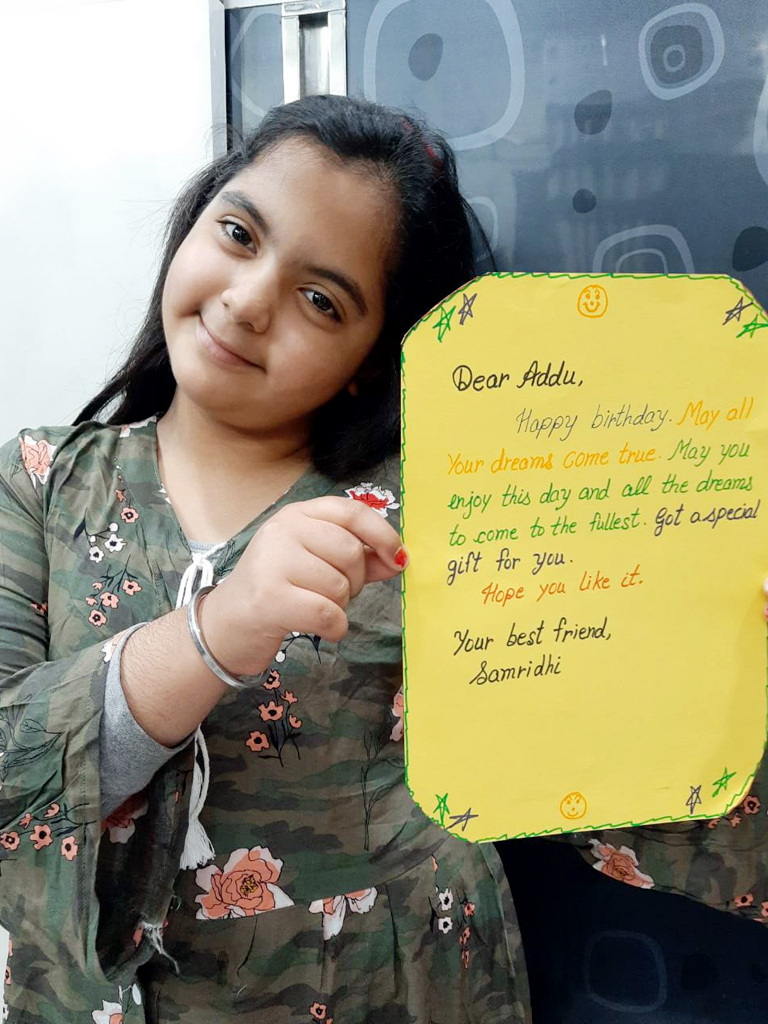 Dear Addu,
Happy birthday. May all
Your dreams come true. May you
enjoy this day and all the dreams
to come to the fullest. Got a special
gift for you.
Hope you like it.
Your best friend,
Samridhi